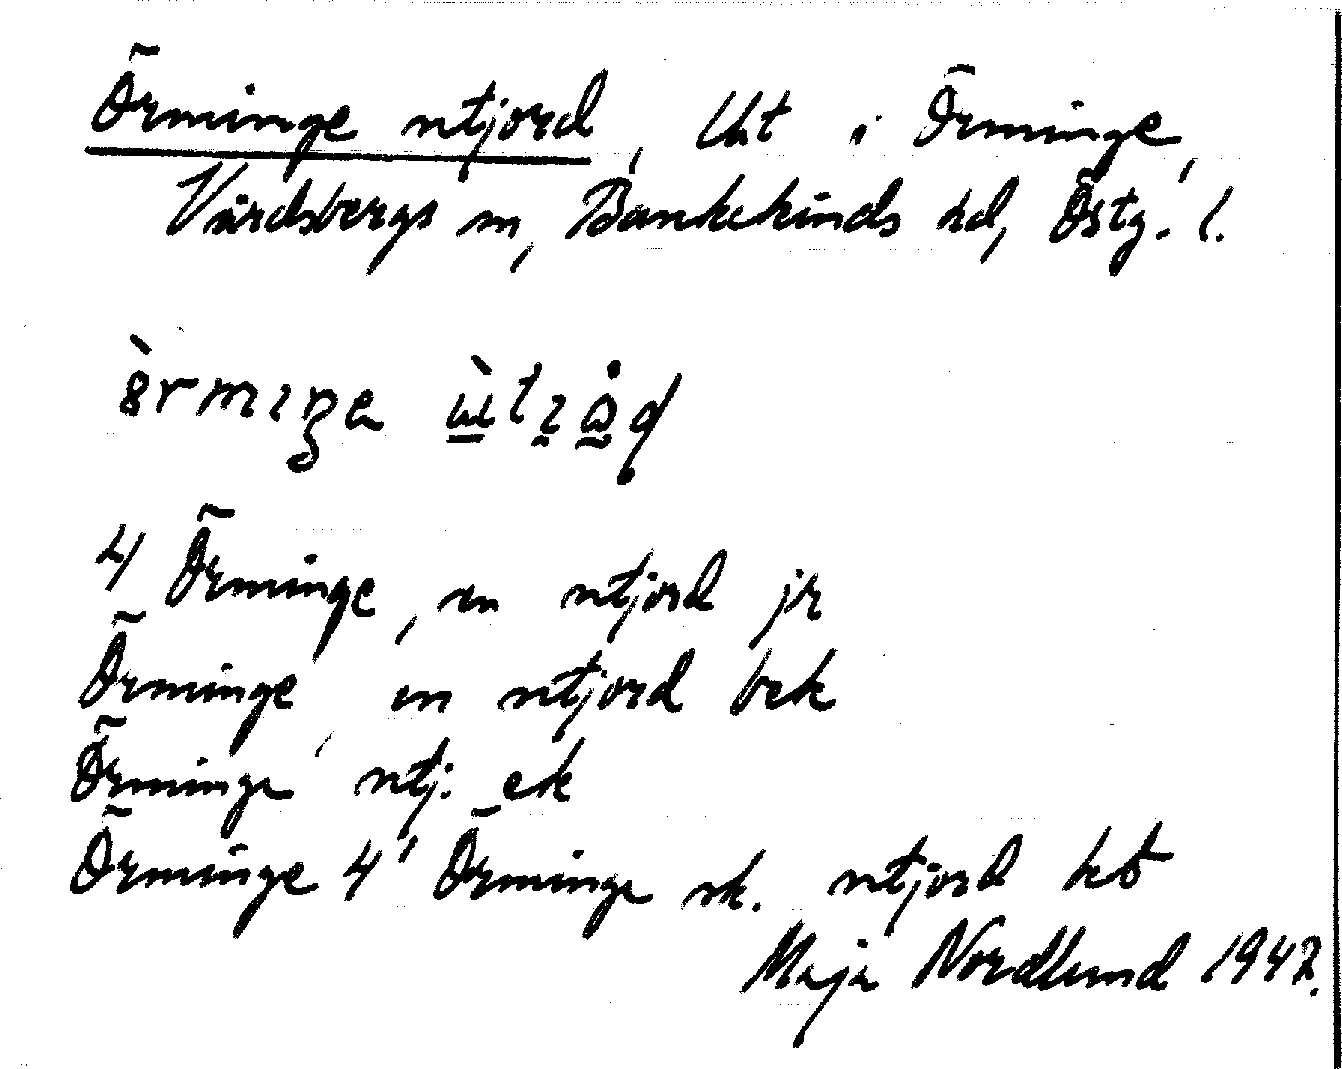 Örminge utjord, Ut i Örminge,
Vårdsbergs sn, Bankekinds hd, Östg. l.
Örminge, en utjord jr
Örminge en utjord bek
Örminge utj. ek
Örminge 4 Örminge sk. utjord
Maja Nordlund 1947.